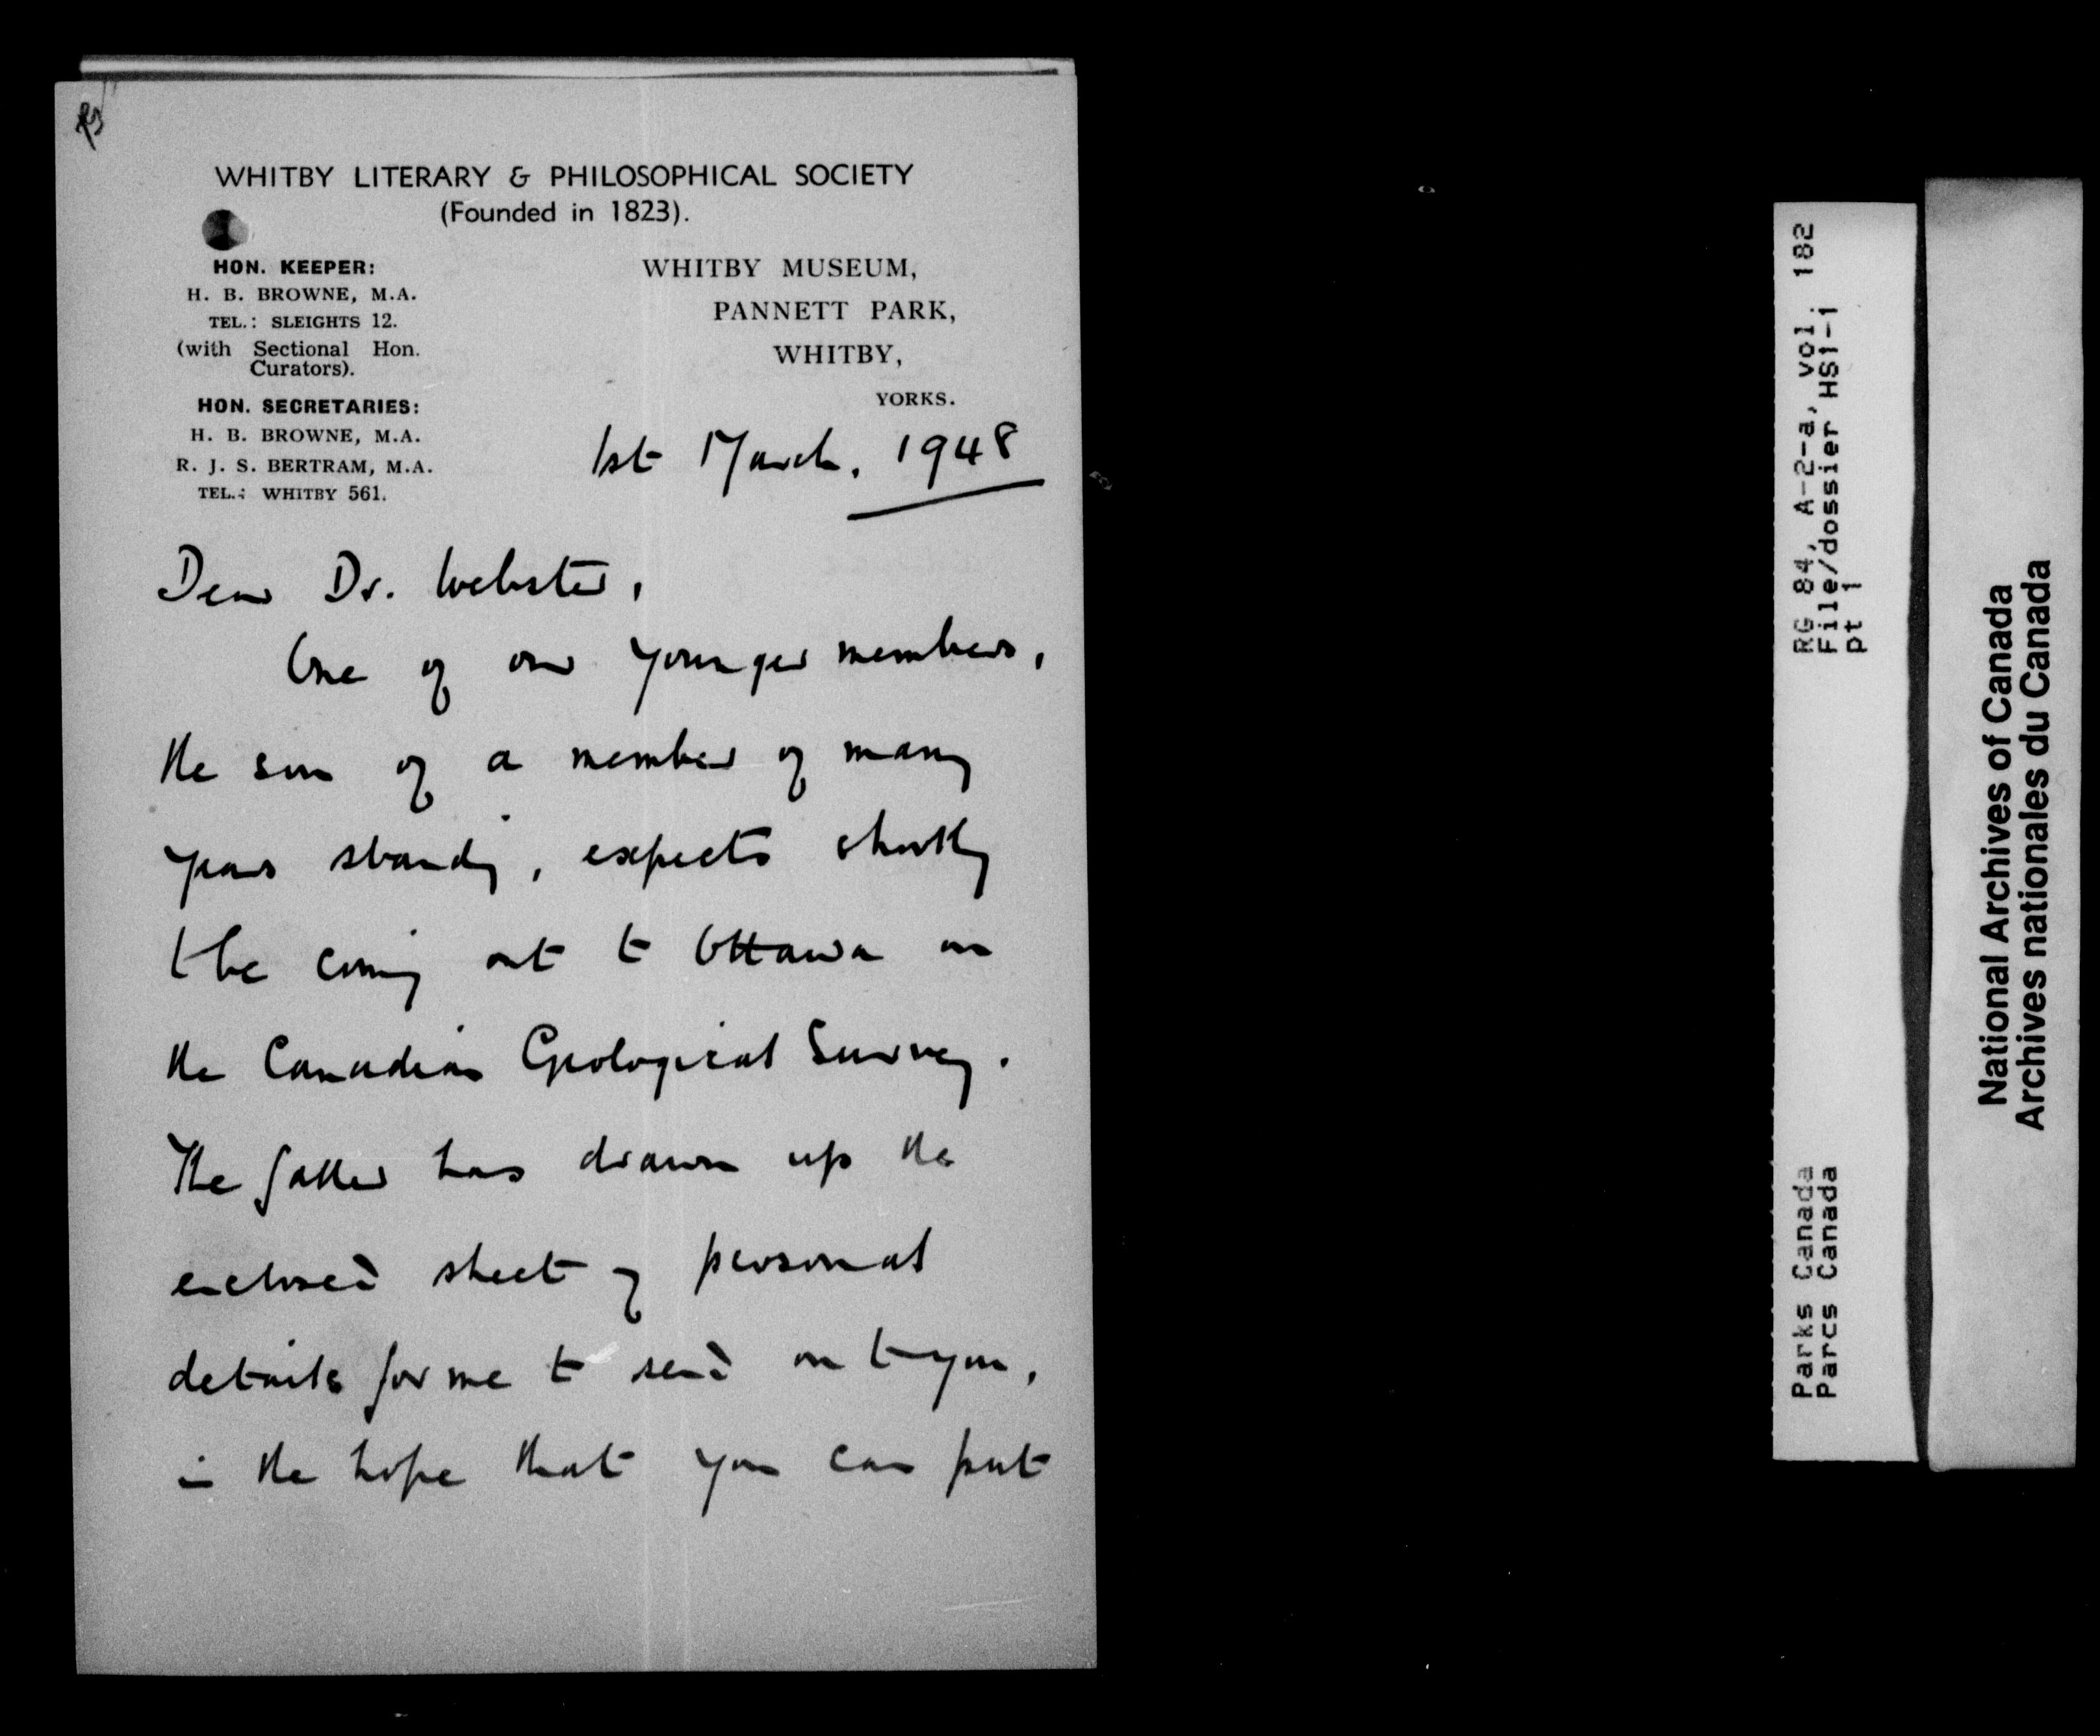 WHITBY LITERARY & PHILOSOPHICAL SOCIETY
(Founded in 1823).
HON. KEEPER:
H. B. BROWNE, M.A.
TEL.: SLEIGHTS 12.
(with Sectional Hon.
Curators).
HON. SECRETARIES:
H. B. BROWNE, M.A.
R. J. S. BERTRAM, M.A.
TEL.: WHITBY 561.
WHITBY MUSEUM,
PANNETT PARK,
WHITBY,
YORKS.
1st March, 1948
Dear Dr. Webster,
One of our younger members,
the son of a member of many
years standing, expects shortly
to be coming out to Ottawa on
the Canadian Geological Survey.
The father has drawn up the
enclosed sheet of personal
details for me to send on to you,
in the hope that you can put
RG 84, A-2-a, vol. 182
File/dossier HS1-i
pt 1
Parks Canada
Parcs Canada
National Archives of Canada
Archives nationales du Canada